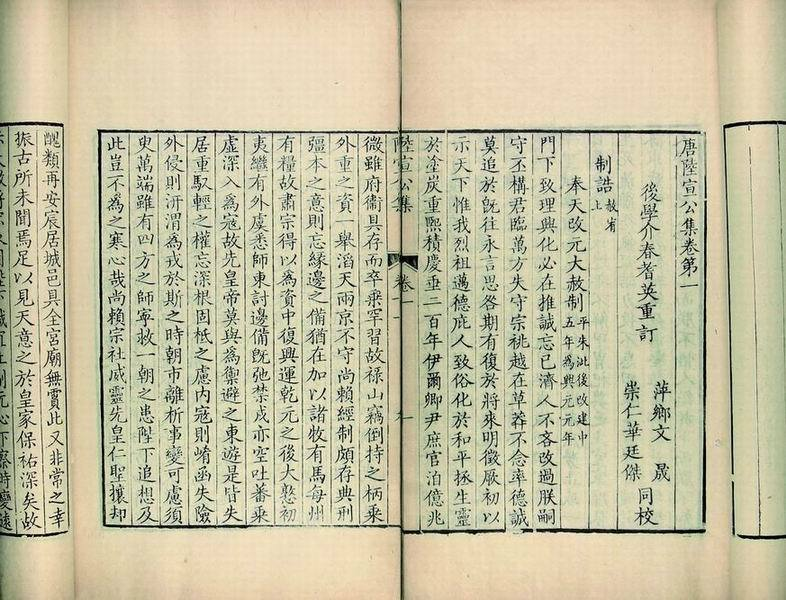 唐陸宣公集卷第一
後學介春耆英重訂
萍鄉文晟
崇仁華廷傑
同校
制誥 赦宥上
奉天改元大赦制 平朱泚後改建中五年為興元元年
門下致理興化必在推誠忘己濟人不吝改過朕嗣
守丕構君臨萬方失守宗祧越在草莽不念率德誠
莫追於旣往永言思咎期有復於將來明徵厥初以
示天下惟我烈祖邁德庇人致俗化於和平拯生靈
於塗炭重熙積慶垂二百年伊爾卿尹庶官洎億兆
陸宣公集
卷一
一
微雖府衞具存而卒乘罕習故祿山竊倒持之柄乘
外重之資一舉滔天兩京不守尚賴經制頗存典刑
彊本之意則忘緣邊之備猶在加以諸牧有馬每州
有糧故肅宗得以為資中復興運乾元之後大憝初
夷繼有外虞悉師東討邊備旣弛禁戍亦空吐蕃乘
虛深入為寇故先皇帝莫與為禦避之東遊是皆失
居重馭輕之權忘深根固柢之慮內寇則崤函失險
外侵則汧渭為戎於斯之時朝市離析事變可慮須
臾萬端雖有四方之師寧救一朝之患陛下追想及
此豈不為之寒心哉尚賴宗社威靈先皇仁聖攘却
醜類再安宸居城邑具全宮廟無霣此又非常之幸
振古所未聞焉足以見天意之於皇家保祐深矣故